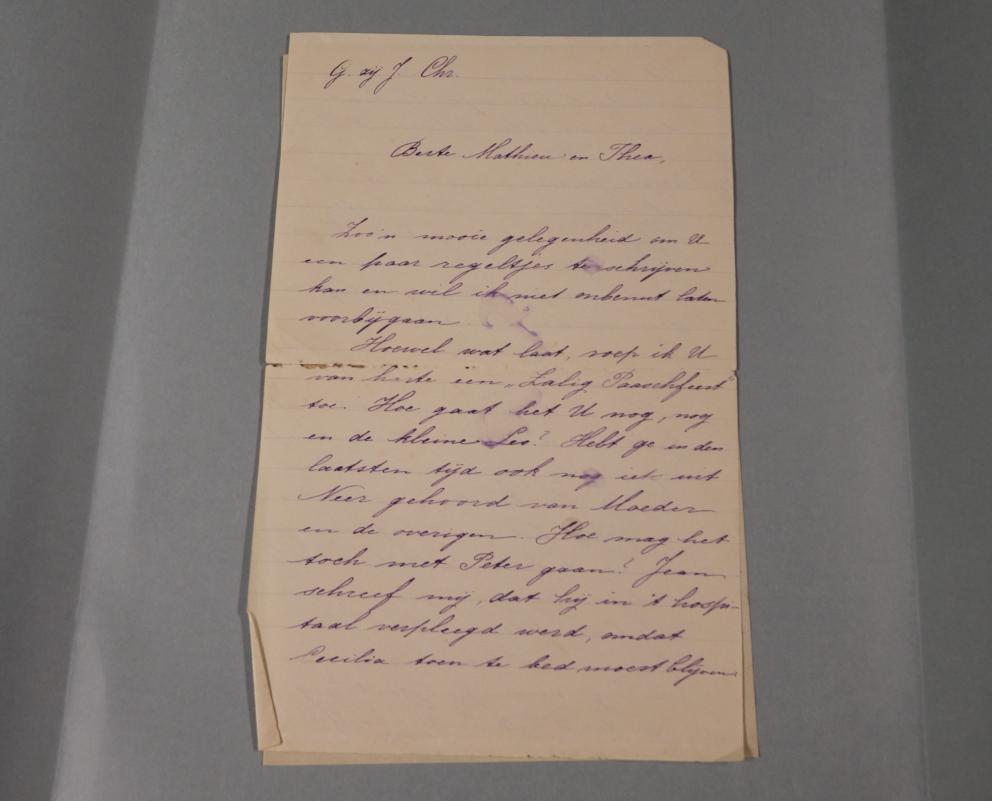 G. zij J. Chr.
Beste Mathieu en Thea,
Zoo'n mooie gelegenheid om U
een paar regeltjes te schrijven
kan en wil ik niet onbenut laten
voorbijgaan
Hoewel wat laat, roep ik U
van harte een „Zalig Paaschfeest"
toe. Hoe gaat het U nog, nog
en de kleine Leo? Hebt ge in den
laatsten tijd ook nog iets uit
Neer gehoord van Moeder
en de overigen. Hoe mag het
toch met Peter gaan? Jean
schreef mij, dat hij in 't hospi-
taal verpleegd werd, omdat
Cecilia toen te bed moest blijven.